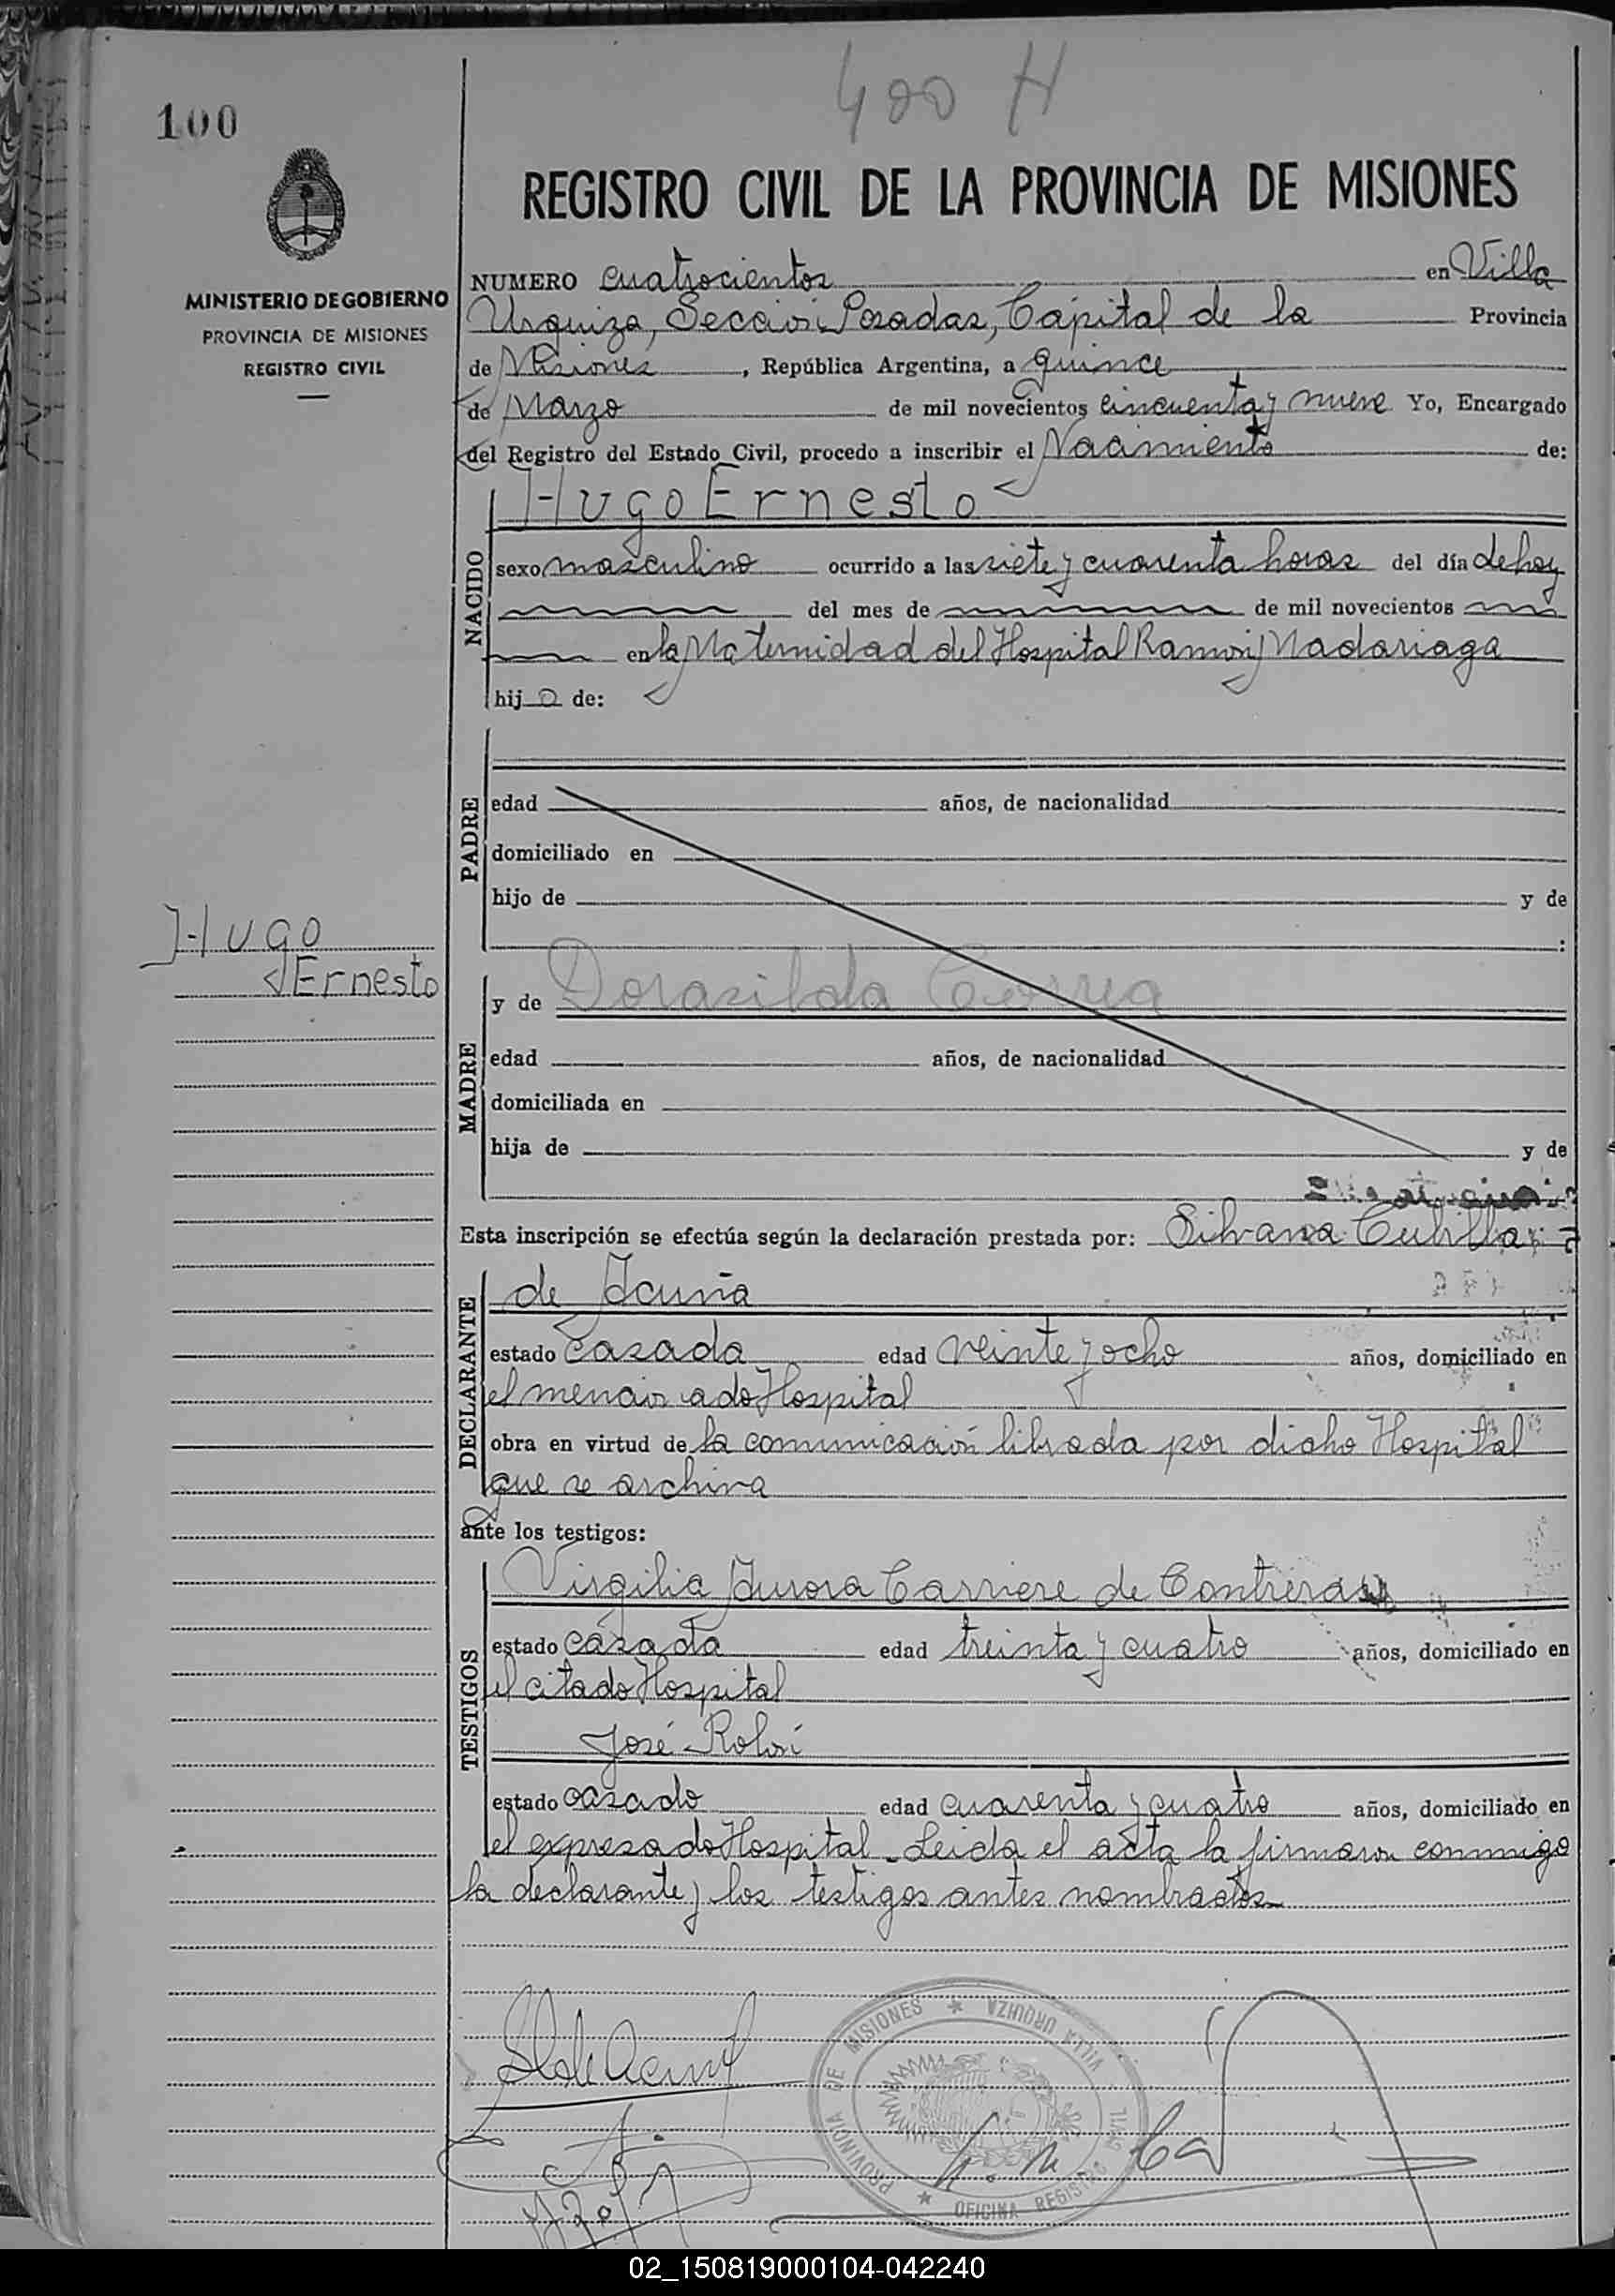 400 H
100
REGISTRO CIVIL DE LA PROVINCIA DE MISIONES
MINISTERIO DE GOBIERNO
PROVINCIA DE MISIONES
REGISTRO CIVIL
NUMERO cuatrocientos en Villa
Urquiza, Sección Posadas, Capital de la Provincia
de Misiones, República Argentina, a quince
de Marzo de mil novecientos cincuenta y nueve Yo, Encargado
del Registro del Estado Civil, procedo a inscribir el Nacimiento de:
Hugo Ernesto
NACIDO
sexo masculino ocurrido a las siete y cuarenta horas del día de hoy
del mes de de mil novecientos
en la Maternidad del Hospital Ramón Madariaga
hijo de:
PADRE
edad años, de nacionalidad
domiciliado en
hijo de y de
:
Hugo
Ernesto
MADRE
y de Dorasilda Correa
edad años, de nacionalidad
domiciliada en
hija de y de
Esta inscripción se efectúa según la declaración prestada por: Silvana
de Acuña
DECLARANTE
estado casada edad veinte y ocho años, domiciliado en
el mencionado Hospital
obra en virtud de la comunicación librada por dicho Hospital
que se archiva
ante los testigos:
TESTIGOS
Virgilia Aurora Carriere de Contreras
estado casada edad treinta y cuatro años, domiciliado en
el citado Hospital
José
estado casado edad cuarenta y cuatro años, domiciliado en
el expresado Hospital. Leida el acta la firmaron conmigo
la declarante y los testigos antes nombrados
S. de Acuña
PROVINCIA DE MISIONES * VILLA URQUIZA
* OFICINA REGISTRO CIVIL
02_150819000104-042240